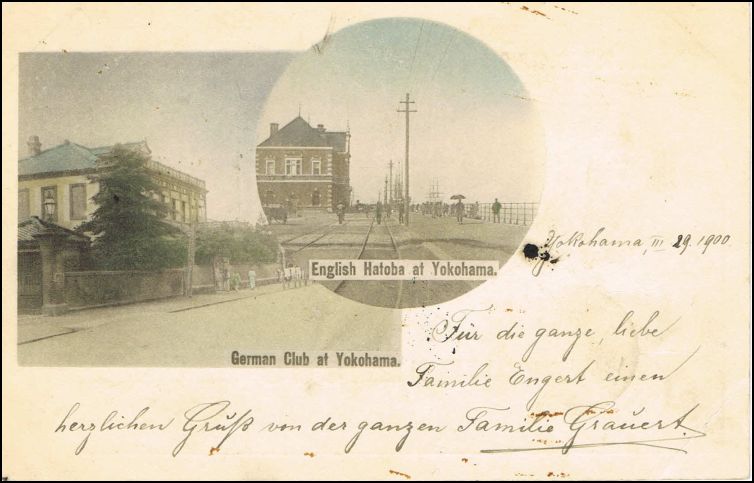 English Hatoba at Yokohama.
German Club at Yokohama.
Yokohama, III 29. 1900.
Für die ganze, liebe
Familie Engert einen
herzlichen Gruß von der ganzen Familie Grauert.